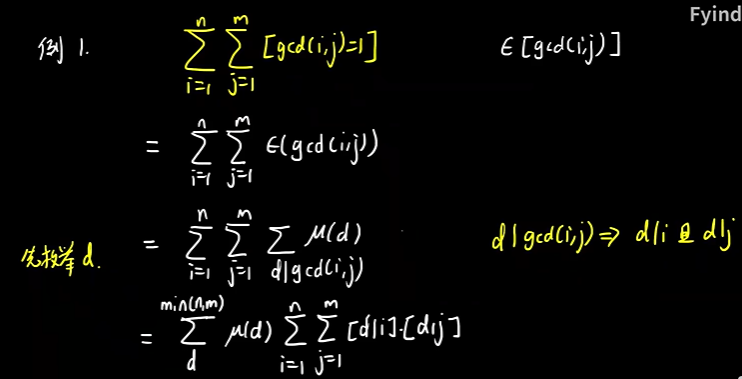 Fyind
例 1. \sum_{i=1}^{n} \sum_{j=1}^{m} [gcd(i,j)=1] ∈[gcd(i,j)]
= \sum_{i=1}^{n} \sum_{j=1}^{m} ∈(gcd(i,j))
先枚举 d. = \sum_{i=1}^{n} \sum_{j=1}^{m} \sum_{d|gcd(i,j)} μ(d) d|gcd(i,j) ⇒ d|i 且 d|j
= \sum_{d}^{min(n,m)} μ(d) \sum_{i=1}^{n} \sum_{j=1}^{m} [d|i]·[d|j]